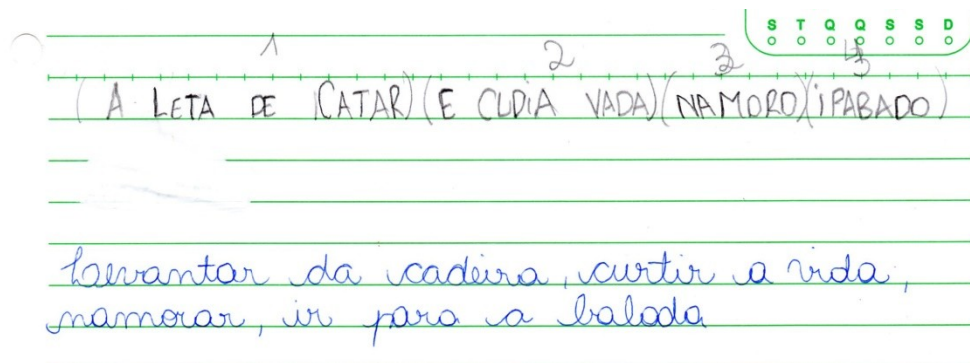 S T Q Q S S D
1 2 3 4
(A LETA DE CATAR) (E CUDIA VADA) (NAMORO) (iPABADO)
Levantar da cadeira, curtir a vida,
namorar, ir para a balada